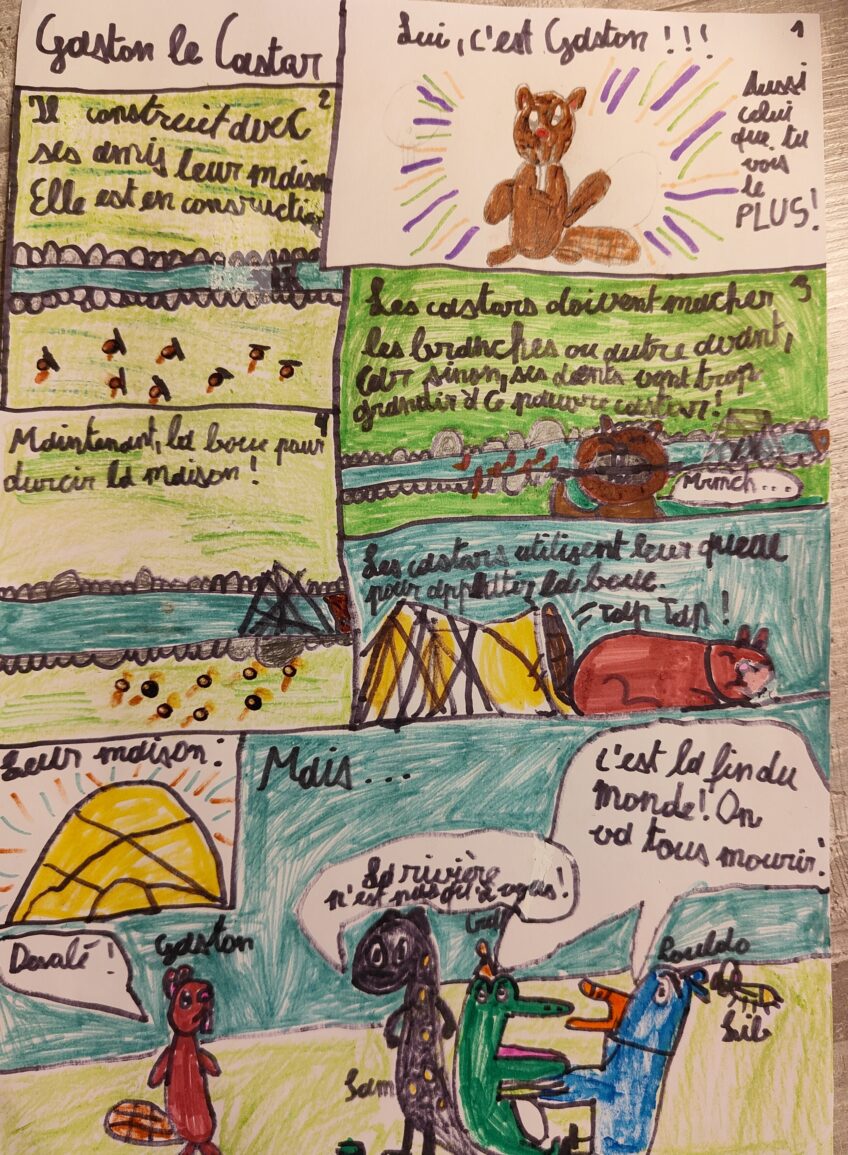 Gaston le Castar
1
Lui, c'est Gaston !!!
Aussi
celui
que tu
vois
le
PLUS!
2
Il construit avec
ses amis leur maison
Elle est en constructi
3
Les castars doivent macher
les branches ou autre avant,
Car sinon, ses dents vont trop
grandir à ce pauvre castar!
Mrmch...
4
Maintenant, la boue pour
durcir la maison!
Les castars utilisent leur queue
pour applatir la boue.
Tap Tap!
Leur maison:
Mais...
C'est la fin du
Monde! On
va tous mourir!
La rivière
n'est pas qu'à vous!
Desolé!
Gaston
Rouldo
Lib
Sam